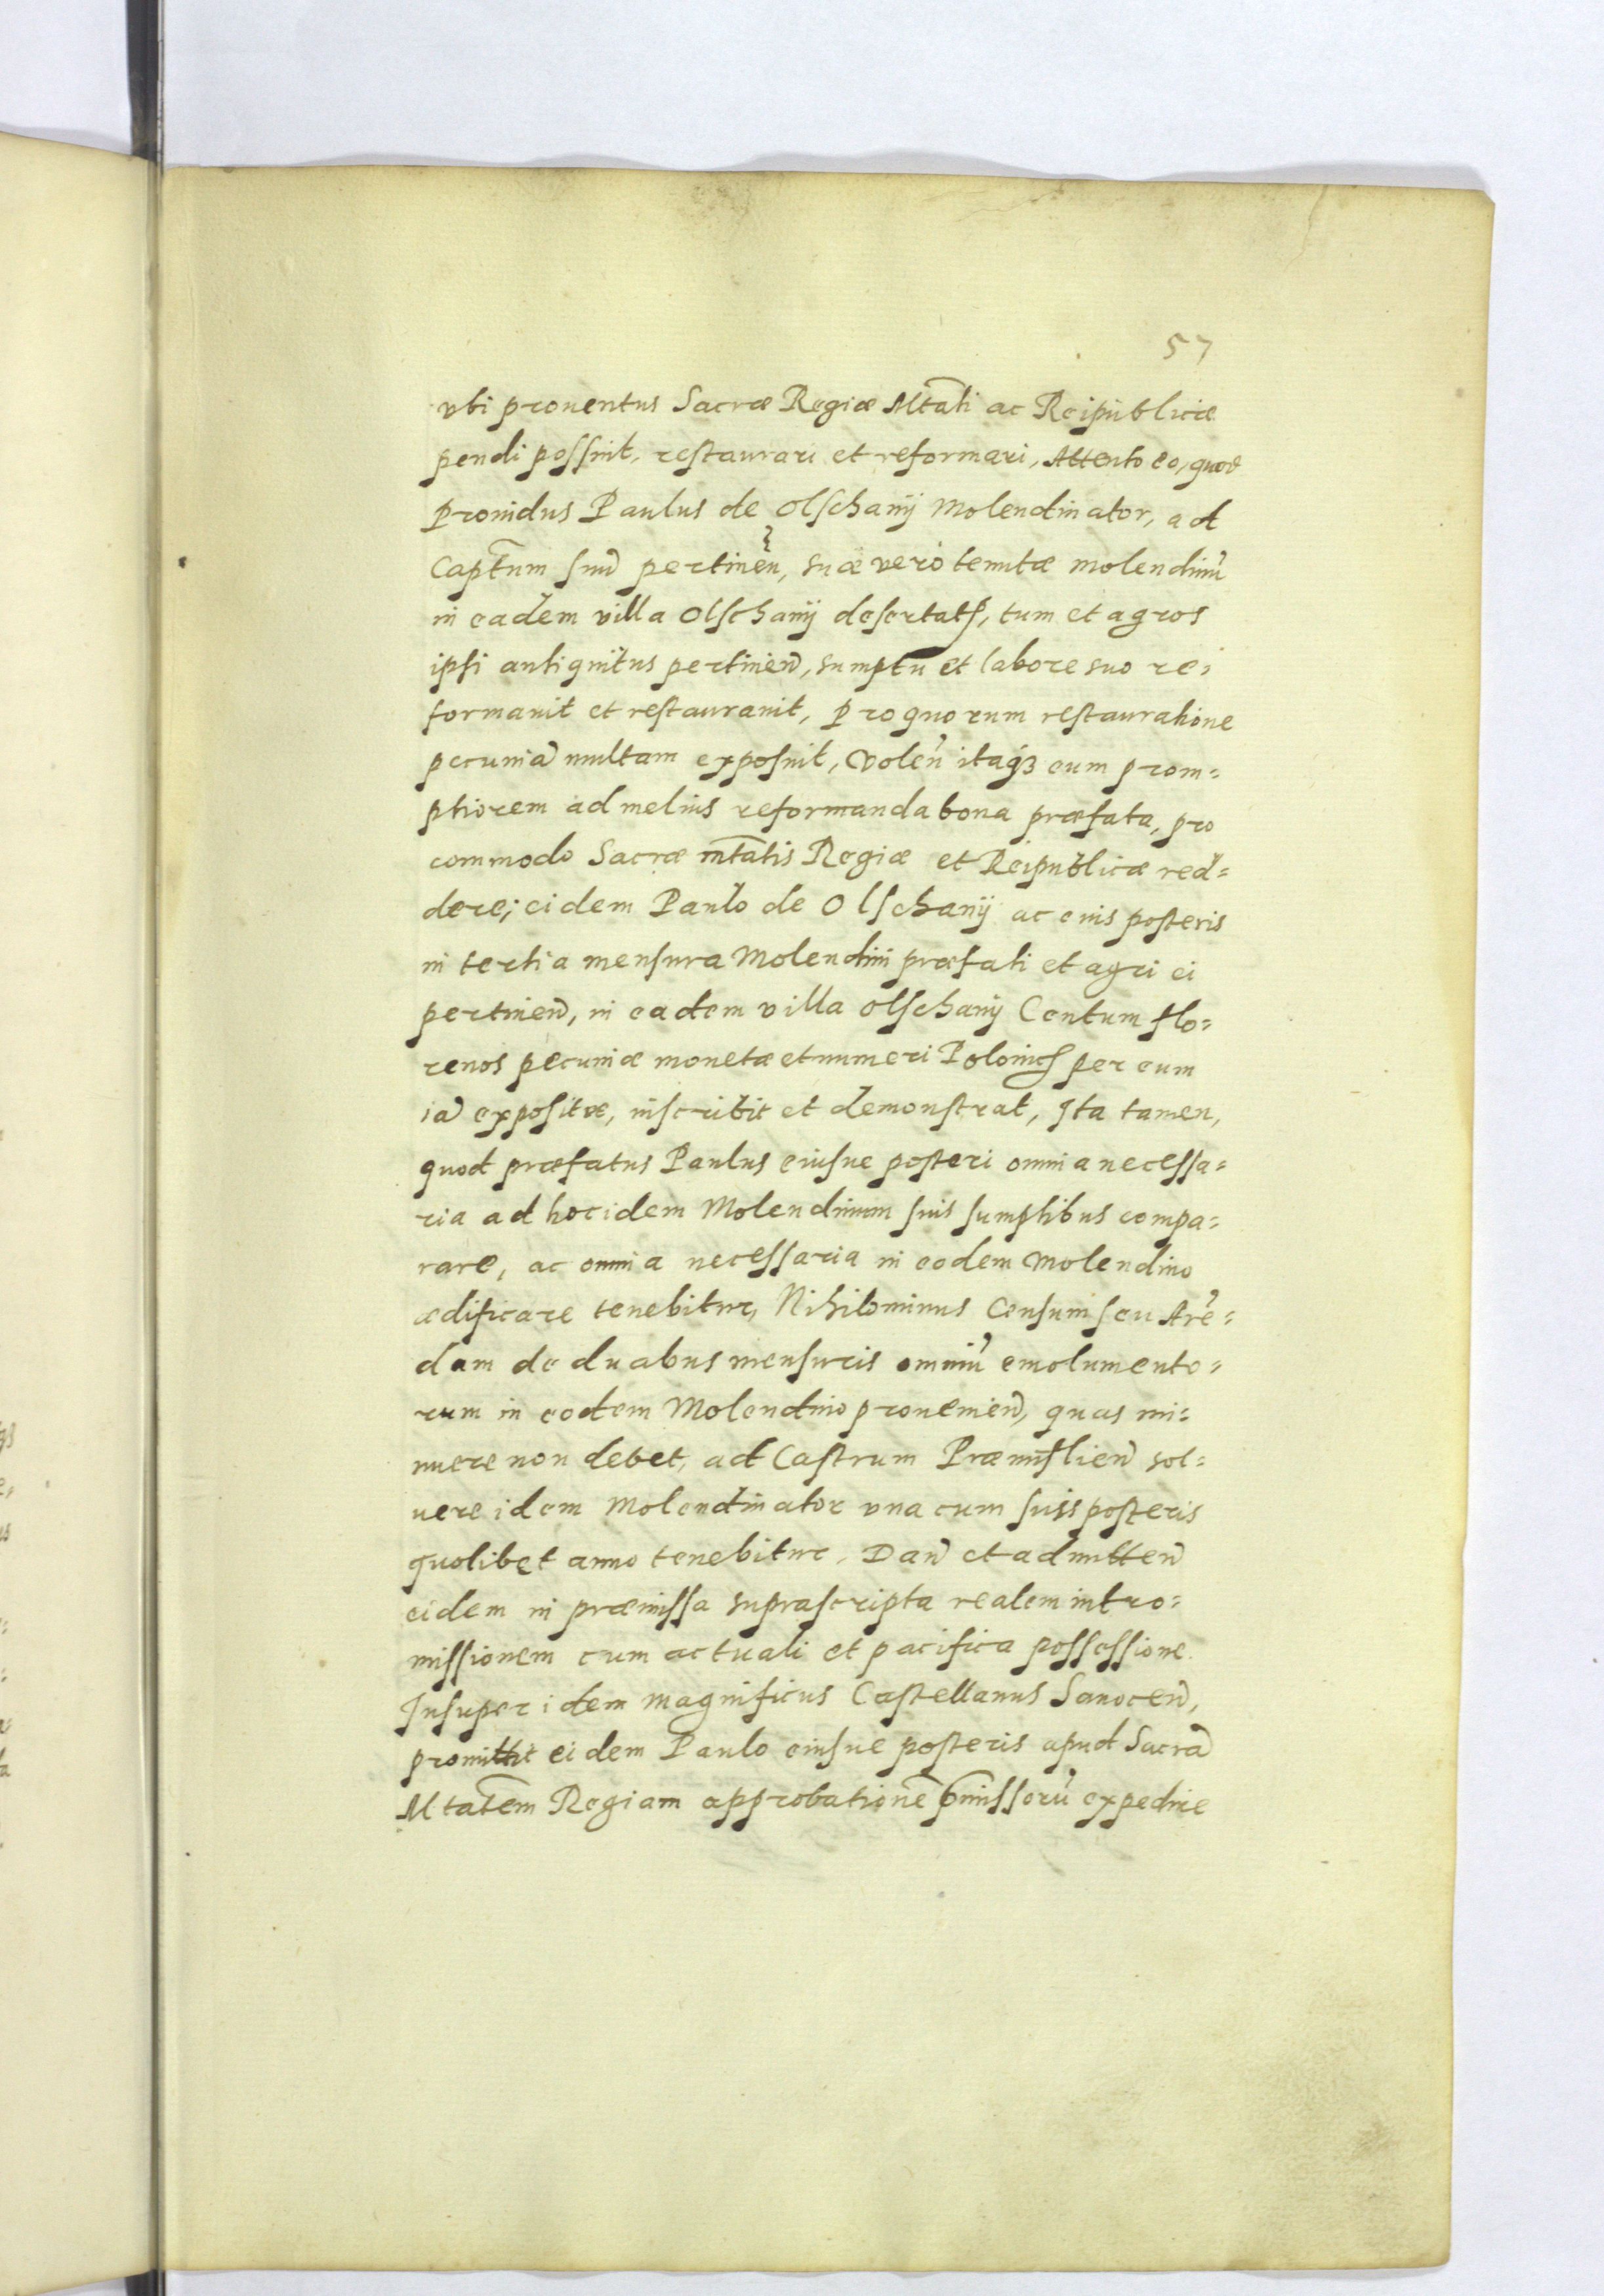 57
vbi prouentus Sacræ Regiæ Mtāti ac Reipublicæ
pendi possint, restaurari et reformari, Attento eo, quod
Prouidus Paulus de Olschanij Molendinator, ad
Captum suū pertinēn, suæ vero tenutæ molendinū
in eadem villa Olschanij desertatų, tum et agros
ipsi antiquitus pertinen̄, sumptu et labore suo re:
formauit et restaurauit, Pro quorum restauratione
pecuniā multam exposuit, Volen̄ itaqȝ eum prom=
ptiorem ad melius reformanda bona præfata, pro
commodo Sacræ mtātis Regiæ et Reipublicæ red=
dere; eidem Paulo de Olschanij ac eius posteris
in tertia mensura Molendini præfati et agri ei
pertinen̄, in eadem villa Olschanij Centum flo=
renos pecuniæ monetæ et numeri Polonicę per eum
iā expositæ, inscribit et demonstrat, Ita tamen,
quod præfatus Paulus eiusue posteri omnia necessa=
ria ad hoc idem Molendinum suis sumptibus compa=
rare, ac omnia necessaria in eodem Molendino
ædificare tenebitur, Nihilominus Censum seu Arē=
dam de duabus mensuris omniū emolumento=
rum in eodem Molendino prouenien̄, quas mi=
nuere non debet, ad Castrum Præmislien̄ sol=
uere idem Molendinator vna cum suis posteris
quolibet anno tenebitur, Dan̄ et admitten̄
eidem in præmissa suprascripta realem intro=
missionem cum actuali et pacifica possessione.
Insuper idem magnificus Castellanus Sanocen̄,
promittit eidem Paulo eiusue posteris apud Sacrā
Mtatem̄ Regiam approbationē p̄missorū expedire